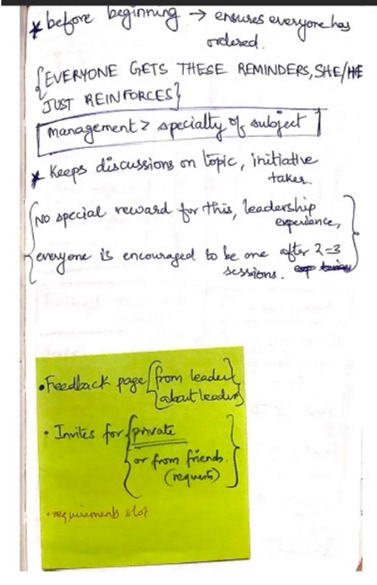 * before beginning → ensures everyone has
ordered.
{EVERYONE GETS THESE REMINDERS, SHE/HE
JUST REINFORCES}
[management > specialty of subject]
* Keeps discussions on topic, initiative
taker.
{No special reward for this, leadership
experience,
everyone is encouraged to be one after 2-3
sessions.}
• Feedback page {from leader}
{about leader}
• Invites for {private
or from friends.
(request)}
• requirements slot